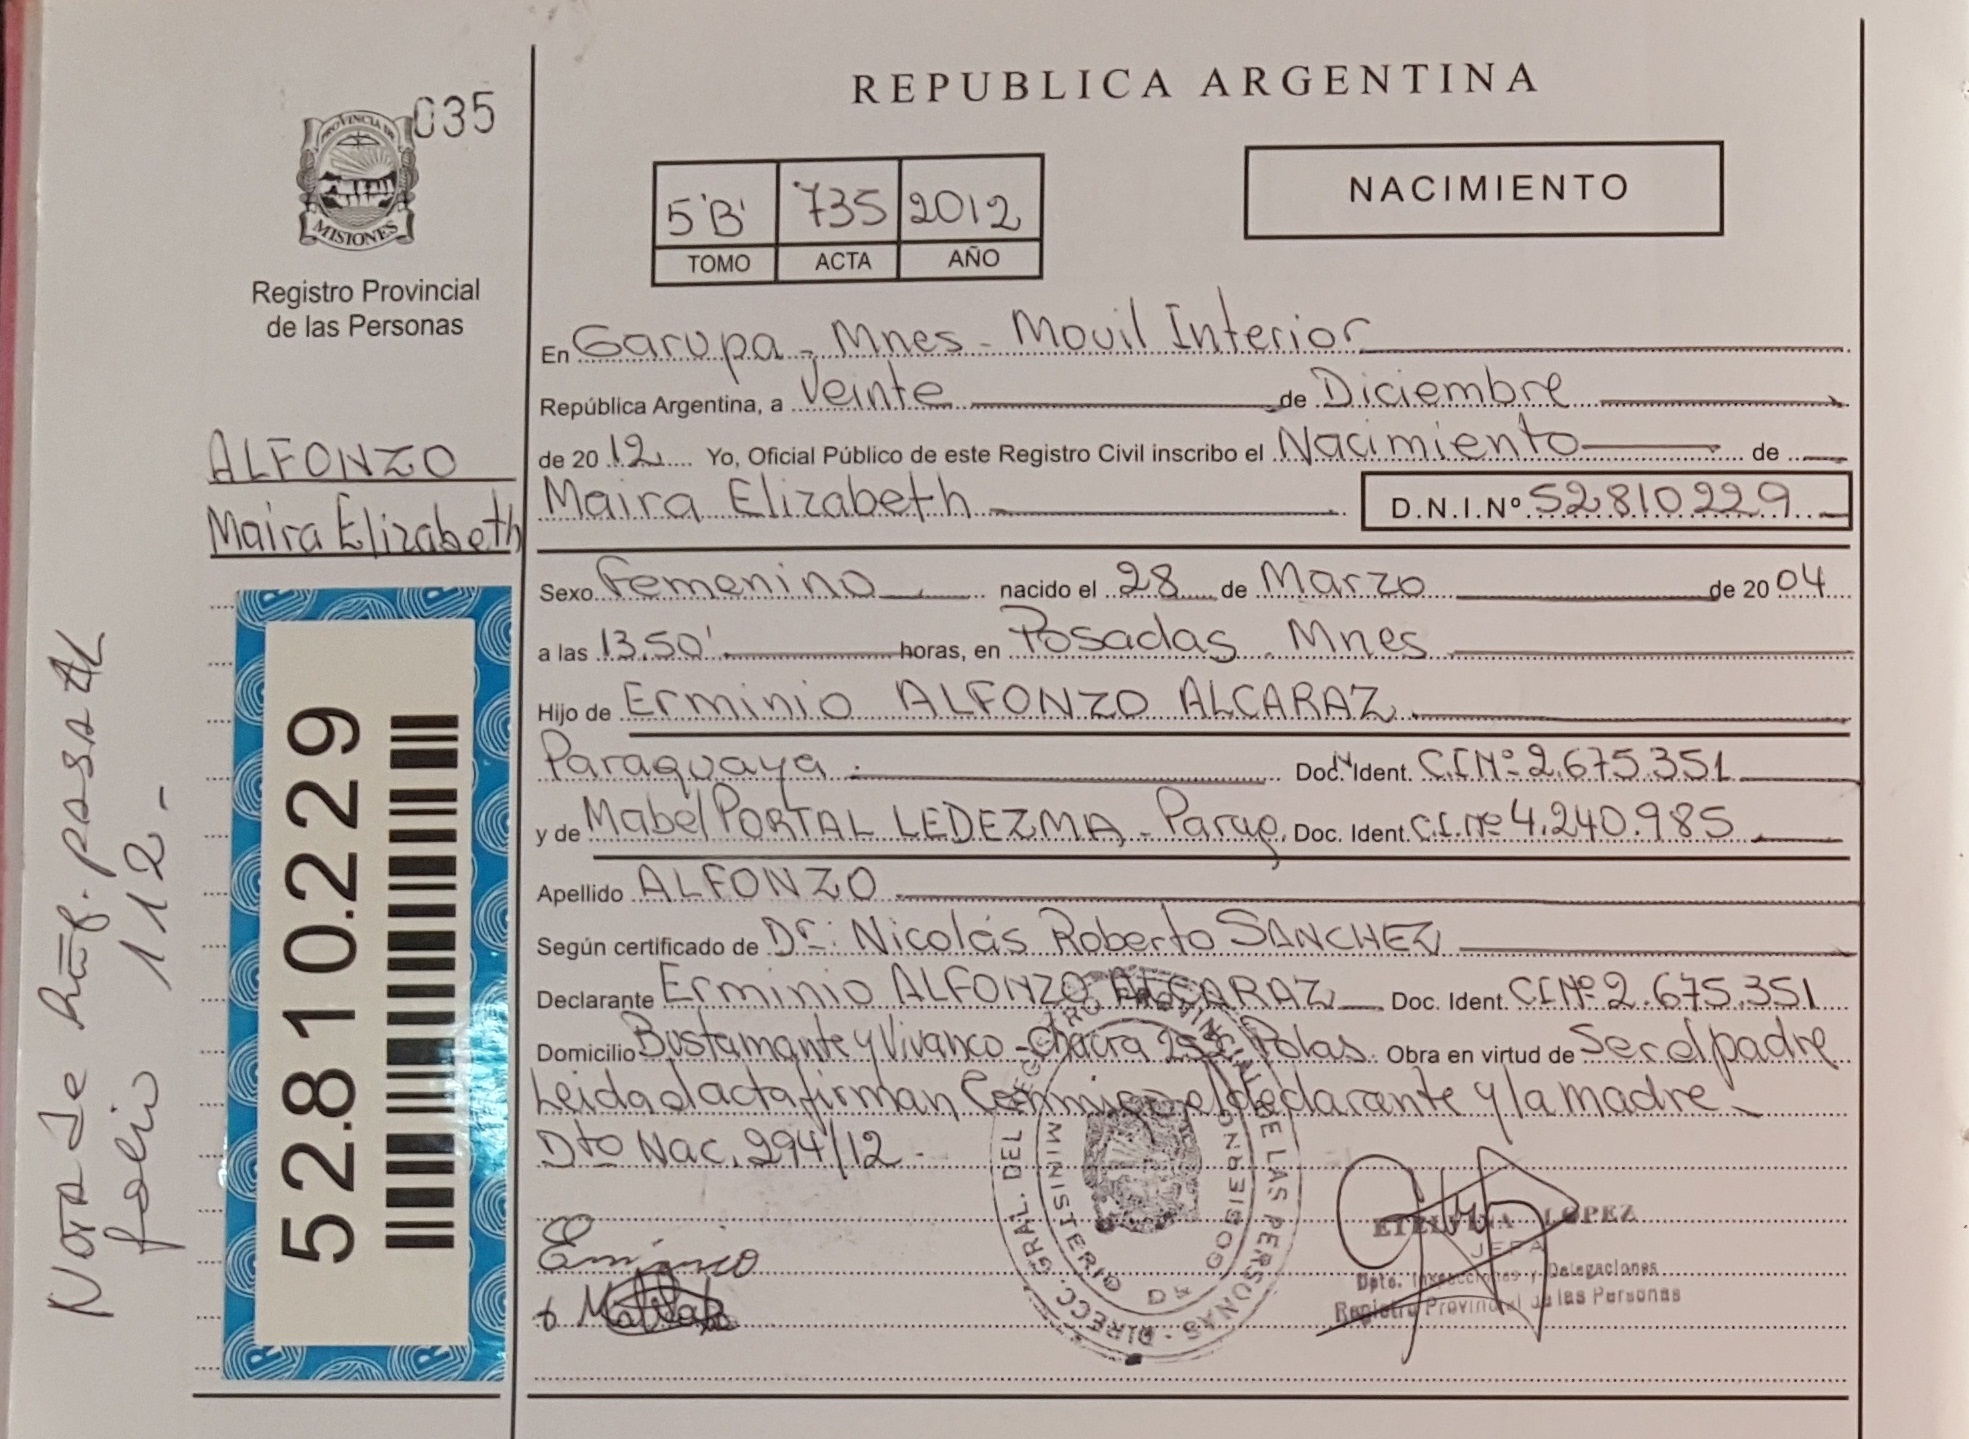 035
PROVINCIA DE
MISIONES
Registro Provincial
de las Personas
ALFONZO
Maira Elizabeth
52.810.229
Nota de Ratif. pasa al
folio 112.-
REPUBLICA ARGENTINA
5'B' 735 2012
TOMO ACTA AÑO
NACIMIENTO
En Garupa - Mnes - Movil Interior
República Argentina, a Veinte de Diciembre
de 2012 Yo, Oficial Público de este Registro Civil inscribo el Nacimiento de
Maira Elizabeth D.N.I.Nº 52810229
Sexo Femenino nacido el 28 de Marzo de 2004
a las 13.50' horas, en Posadas. Mnes
Hijo de Erminio ALFONZO ALCARAZ
Paraguaya. Doc. Ident. C.I.Nº 2.675.351
y de Mabel PORTAL LEDEZMA - Parag. Doc. Ident. C.I.Nº 4.240.985
Apellido ALFONZO
Según certificado de Dr: Nicolás Roberto SANCHEZ
Declarante Erminio ALFONZO ALCARAZ Doc. Ident. CINº 2.675.351
Domicilio Bustamante y Vivanco - Chacra Pdas. Obra en virtud de Ser el padre
Leida el acta firman Conmigo el declarante y la madre
Dto Nac. 294/12.
DIRECC. GRAL. DEL REGISTRO PROVINCIAL DE LAS PERSONAS
MINISTERIO DE GOBIERNO
ETELVINA LOPEZ
JEFA
Dpto. Inspecciones y Delegaciones
Registro Provincial de las Personas